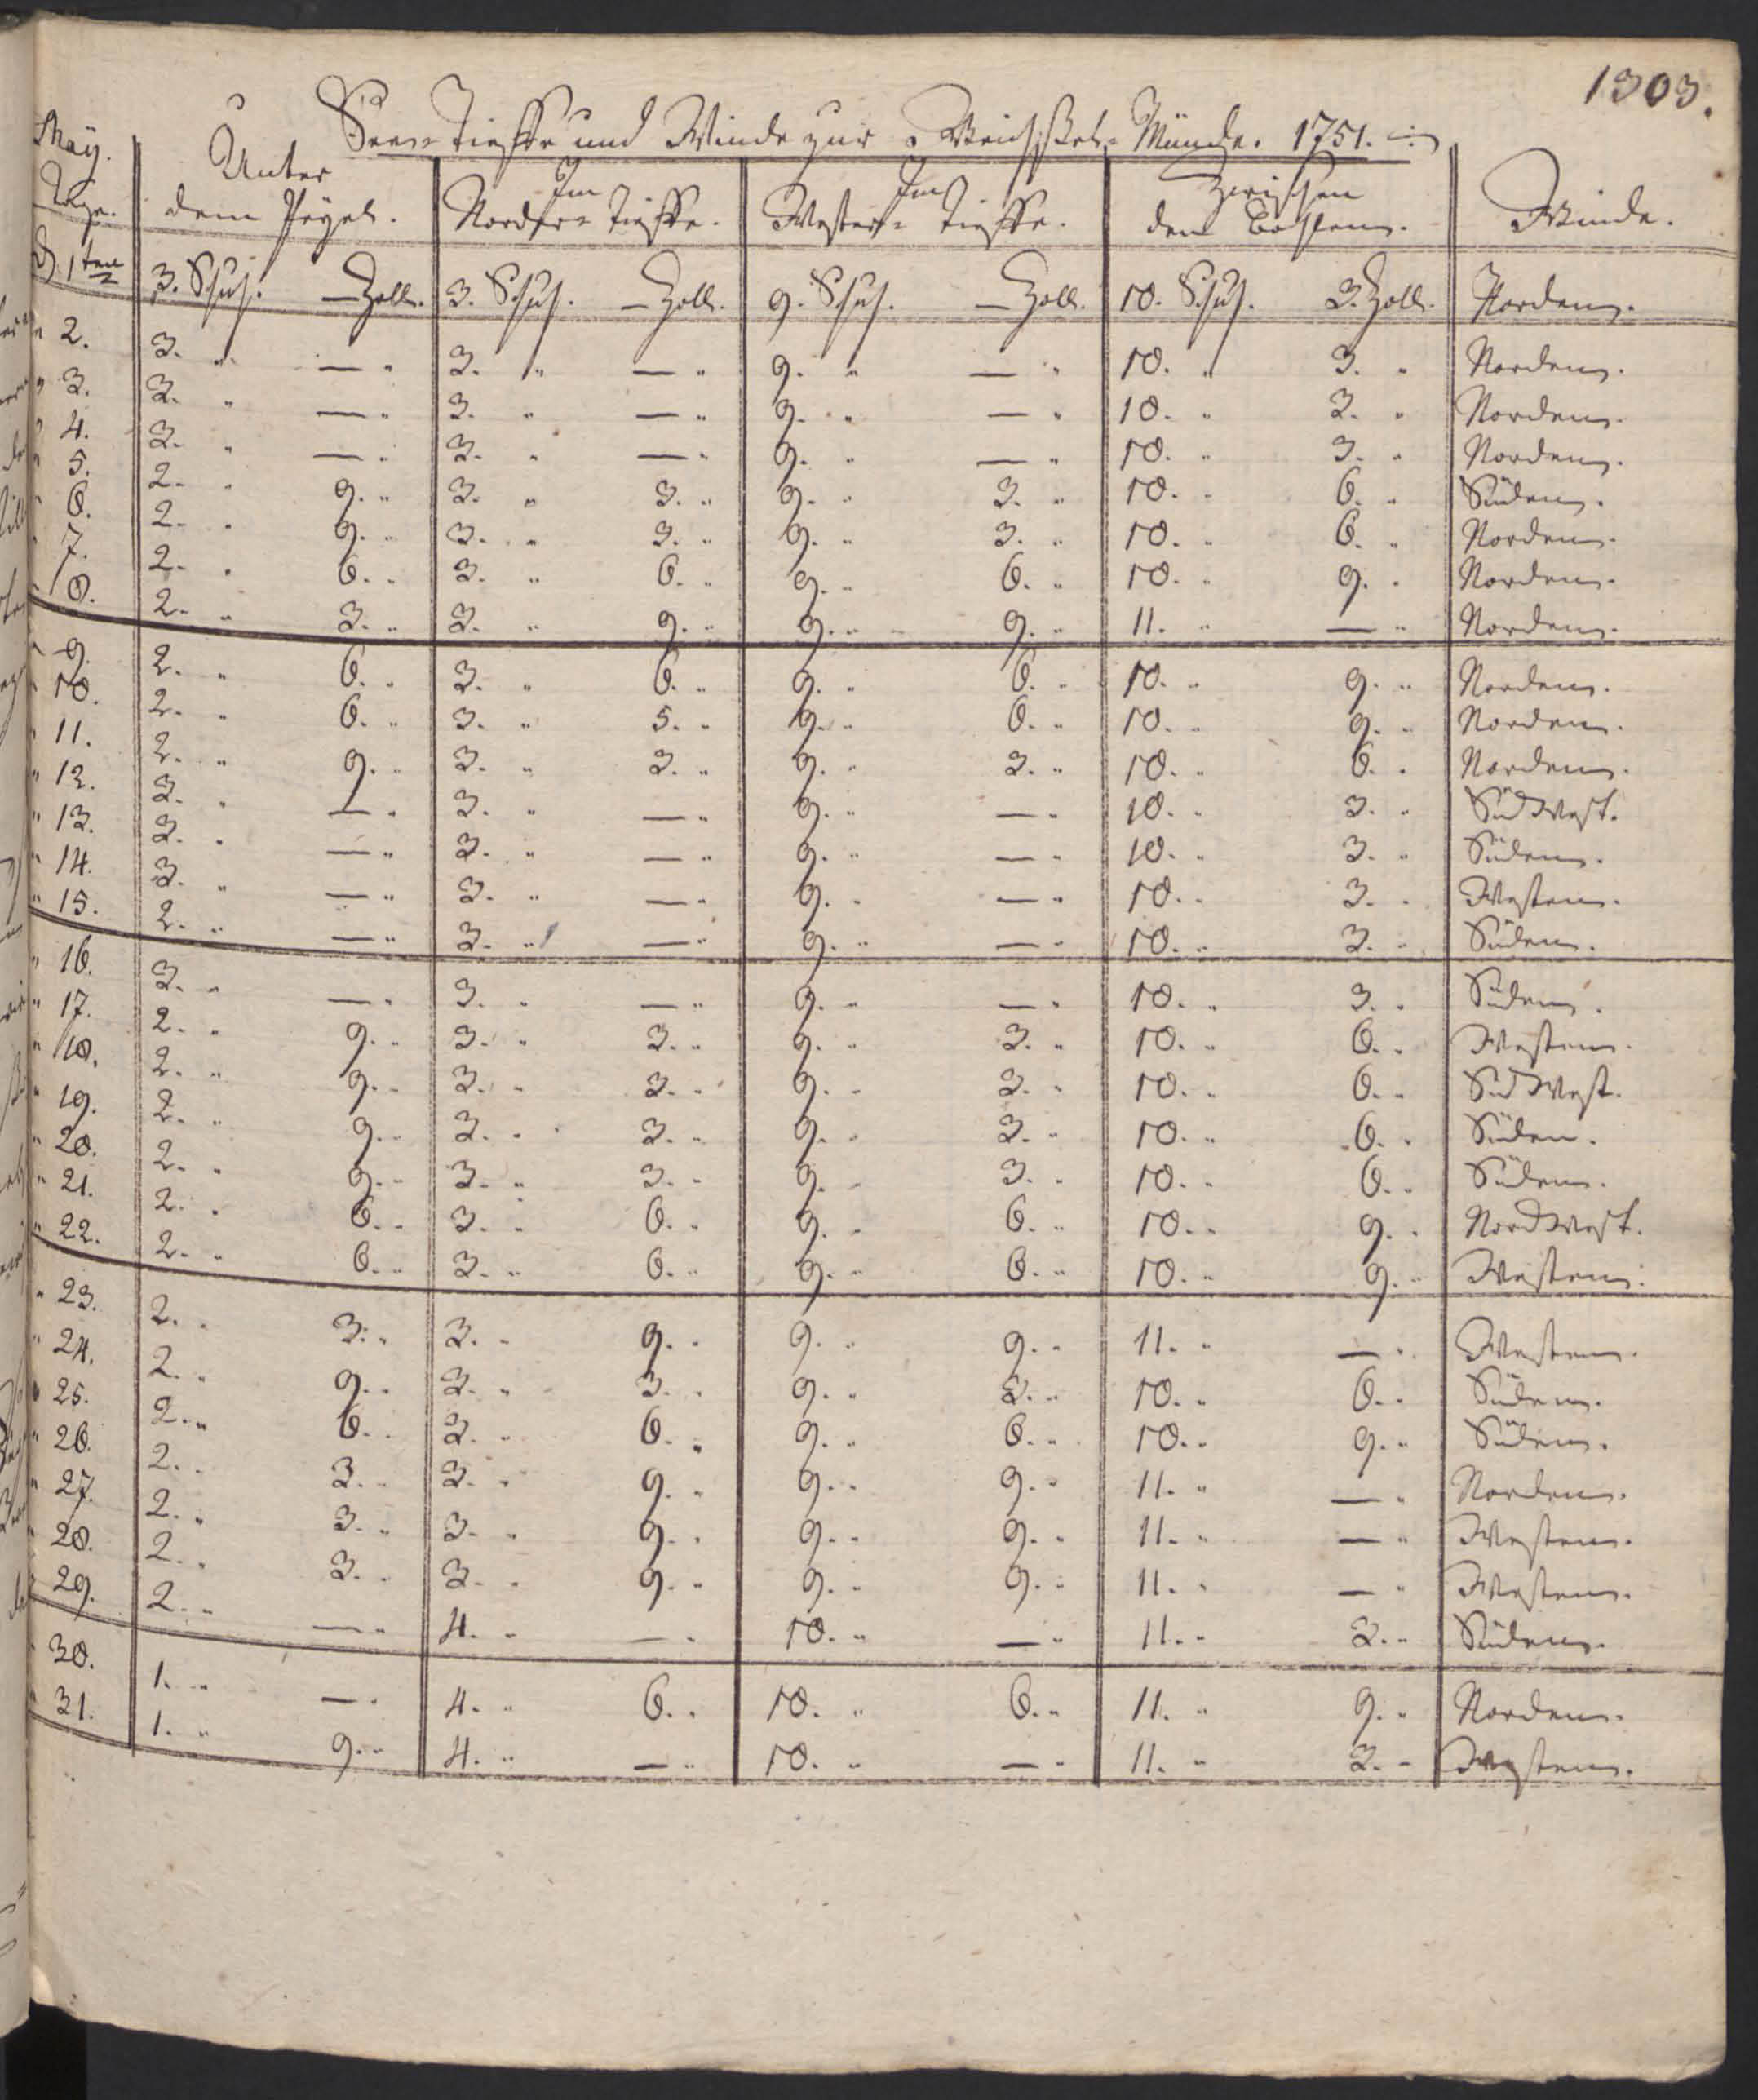 1303.
See-Tieffe und Winde zur Weichsel-Münde. 1751.
May. Tage. | Unter dem Peygel. | Im Norder-Tieffe. | Im Wester-Tieffe. | Zwischen den Bohlen. | Winde.
d. 1ten | 3. Schuh. — Zoll. | 3. Schuh. — Zoll. | 9. Schuh. — Zoll. | 10. Schuh. 3. Zoll. | Norden.
" 2. | 3. " — " | 3. " — " | 9. " — " | 10. " 3. " | Norden.
" 3. | 3. " — " | 3. " — " | 9. " — " | 10. " 3. " | Norden.
" 4. | 3. " — " | 3. " — " | 9. " — " | 10. " 3. " | Norden.
" 5. | 2. " 9. " | 3. " 3. " | 9. " 3. " | 10. " 6. " | Süden.
" 6. | 2. " 9. " | 3. " 3. " | 9. " 3. " | 10. " 6. " | Norden.
" 7. | 2. " 6. " | 3. " 6. " | 9. " 6. " | 10. " 9. " | Norden.
" 8. | 2. " 3. " | 3. " 9. " | 9. " 9. " | 11. " — " | Norden.
" 9. | 2. " 6. " | 3. " 6. " | 9. " 6. " | 10. " 9. " | Norden.
" 10. | 2. " 6. " | 3. " 5. " | 9. " 6. " | 10. " 9. " | Norden.
" 11. | 2. " 9. " | 3. " 3. " | 9. " 3. " | 10. " 6. " | Norden.
" 12. | 3. " — " | 3. " — " | 9. " — " | 10. " 3. " | SüdWest.
" 13. | 3. " — " | 3. " — " | 9. " — " | 10. " 3. " | Süden.
" 14. | 3. " — " | 3. " — " | 9. " — " | 10. " 3. " | Westen.
" 15. | 2. " — " | 3. " — " | 9. " — " | 10. " 3. " | Süden.
" 16. | 3. " — " | 3. " — " | 9. " — " | 10. " 3. " | Süden.
" 17. | 2. " 9. " | 3. " 3. " | 9. " 3. " | 10. " 6. " | Westen.
" 18. | 2. " 9. " | 3. " 3. " | 9. " 3. " | 10. " 6. " | SüdWest.
" 19. | 2. " 9. " | 3. " 3. " | 9. " 3. " | 10. " 6. " | Süden.
" 20. | 2. " 9. " | 3. " 3. " | 9. " 3. " | 10. " 6. " | Süden.
" 21. | 2. " 6. " | 3. " 6. " | 9. " 6. " | 10. " 9. " | NordWest.
" 22. | 2. " 6. " | 3. " 6. " | 9. " 6. " | 10. " 9. " | Westen.
" 23. | 2. " 3. " | 3. " 9. " | 9. " 9. " | 11. " — " | Westen.
" 24. | 2. " 9. " | 3. " 3. " | 9. " 3. " | 10. " 6. " | Süden.
" 25. | 2. " 6. " | 3. " 6. " | 9. " 6. " | 10. " 9. " | Süden.
" 26. | 2. " 3. " | 3. " 9. " | 9. " 9. " | 11. " — " | Norden.
" 27. | 2. " 3. " | 3. " 9. " | 9. " 9. " | 11. " — " | Westen.
" 28. | 2. " 3. " | 3. " 9. " | 9. " 9. " | 11. " — " | Westen.
" 29. | 2. " — " | 4. " — " | 10. " — " | 11. " 3. " | Süden.
" 30. | 1. " — " | 4. " 6. " | 10. " 6. " | 11. " 9. " | Norden.
" 31. | 1. " 9. " | 4. " — " | 10. " — " | 11. " 3. " | Westen.